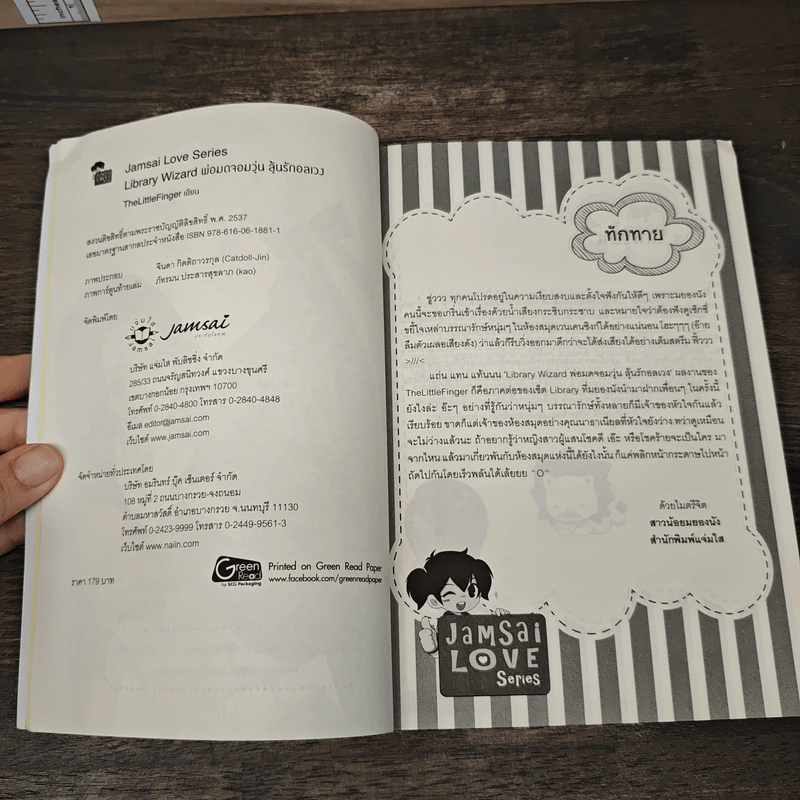 Jamsai Love Series
Library Wizard พ่อมดจอมวุ่น ลุ้นรักอลเวง
TheLittleFinger เขียน
สงวนลิขสิทธิ์ตามพระราชบัญญัติลิขสิทธิ์ พ.ศ. 2537
เลขมาตรฐานสากลประจำหนังสือ ISBN 978-616-06-1881-1
ภาพประกอบ จินดา กิตติถาวรกุล (Catdoll-Jin)
ภาพการ์ตูนท้ายเล่ม ภัทรมน ประสารสุขลาภ (kao)
จัดพิมพ์โดย
jamsai
บริษัท แจ่มใส พับลิชชิ่ง จำกัด
285/33 ถนนจรัญสนิทวงศ์ แขวงบางขุนศรี
เขตบางกอกน้อย กรุงเทพฯ 10700
โทรศัพท์ 0-2840-4800 โทรสาร 0-2840-4848
อีเมล editor@jamsai.com
เว็บไซต์ www.jamsai.com
จัดจำหน่ายทั่วประเทศโดย
บริษัท อมรินทร์ บุ๊ค เซ็นเตอร์ จำกัด
108 หมู่ที่ 2 ถนนบางกรวย-จงถนอม
ตำบลมหาสวัสดิ์ อำเภอบางกรวย จ.นนทบุรี 11130
โทรศัพท์ 0-2423-9999 โทรสาร 0-2449-9561-3
เว็บไซต์ www.naiin.com
Green Read
by SCG Packaging
Printed on Green Read Paper
www.facebook.com/greenreadpaper
ราคา 179 บาท
ทักทาย
ชู่ววว ทุกคนโปรดอยู่ในความเงียบสงบและตั้งใจฟังกันให้ดีๆ เพราะมยองนัง
คนนี้จะขอเกริ่นเข้าเรื่องด้วยน้ำเสียงกระซิบกระซาบ และหมายใจว่าต้องฟังดูเซ็กซี่
ขยี้ใจเหล่าบรรณารักษ์หนุ่มๆ ในห้องสมุดเวนเคนซิงก์ได้อย่างแน่นอน โฮะๆๆๆ (อ๊าย
ลืมตัวเผลอเสียงดัง) ว่าแล้วก็รีบวิ่งออกมาดีกว่าจะได้ส่งเสียงได้อย่างเต็มสตรีม ฟิ้ววว
>///<
แถ่น แทน แท้นนน 'Library Wizard พ่อมดจอมวุ่น ลุ้นรักอลเวง' ผลงานของ
TheLittleFinger ก็คือภาคต่อของเซ็ต Library ที่มยองนังนำมาฝากเพื่อนๆ ในครั้งนี้
ยังไงล่ะ อ๊ะๆ อย่างที่รู้กันว่าหนุ่มๆ บรรณารักษ์ทั้งหลายก็มีเจ้าของหัวใจกันแล้ว
เรียบร้อย ขาดก็แต่เจ้าของห้องสมุดอย่างคุณนาธาเนียลที่หัวใจยังว่าง ทว่าดูเหมือน
จะไม่ว่างแล้วนะ ถ้าอยากรู้ว่าหญิงสาวผู้แสนโชคดี เอ๊ะ หรือโชคร้ายจะเป็นใคร มา
จากไหน แล้วมาเกี่ยวพันกับห้องสมุดแห่งนี้ได้ยังไงนั้น ก็แค่พลิกหน้ากระดาษไปหน้า
ถัดไปกันโดยเร็วพลันได้เล้ยยย ^O^
ด้วยไมตรีจิต
สาวน้อยมยองนัง
สำนักพิมพ์แจ่มใส
JAMSAI
LOVE
Series